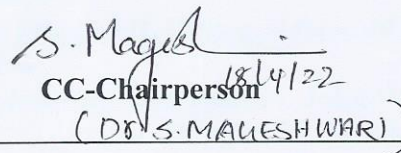 S. Magesh
18/4/22
CC-Chairperson
(Dr S. MAGESHWARI)